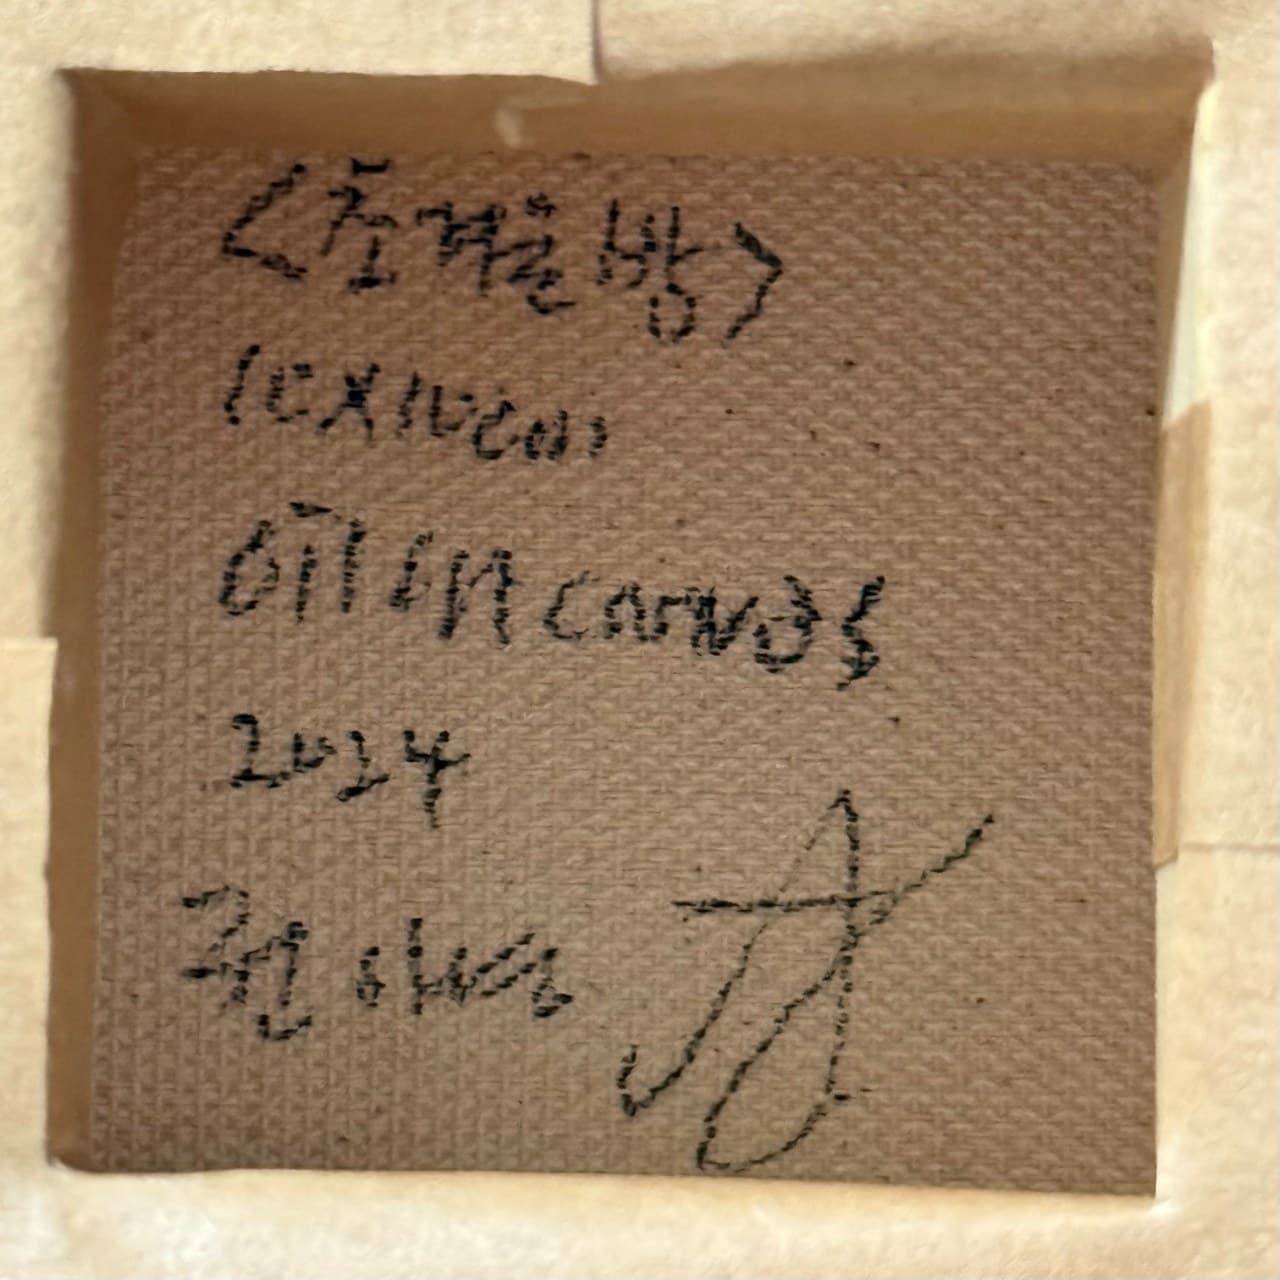 <추 겨울 밤>
10X10cm
Oil on canvas
2024